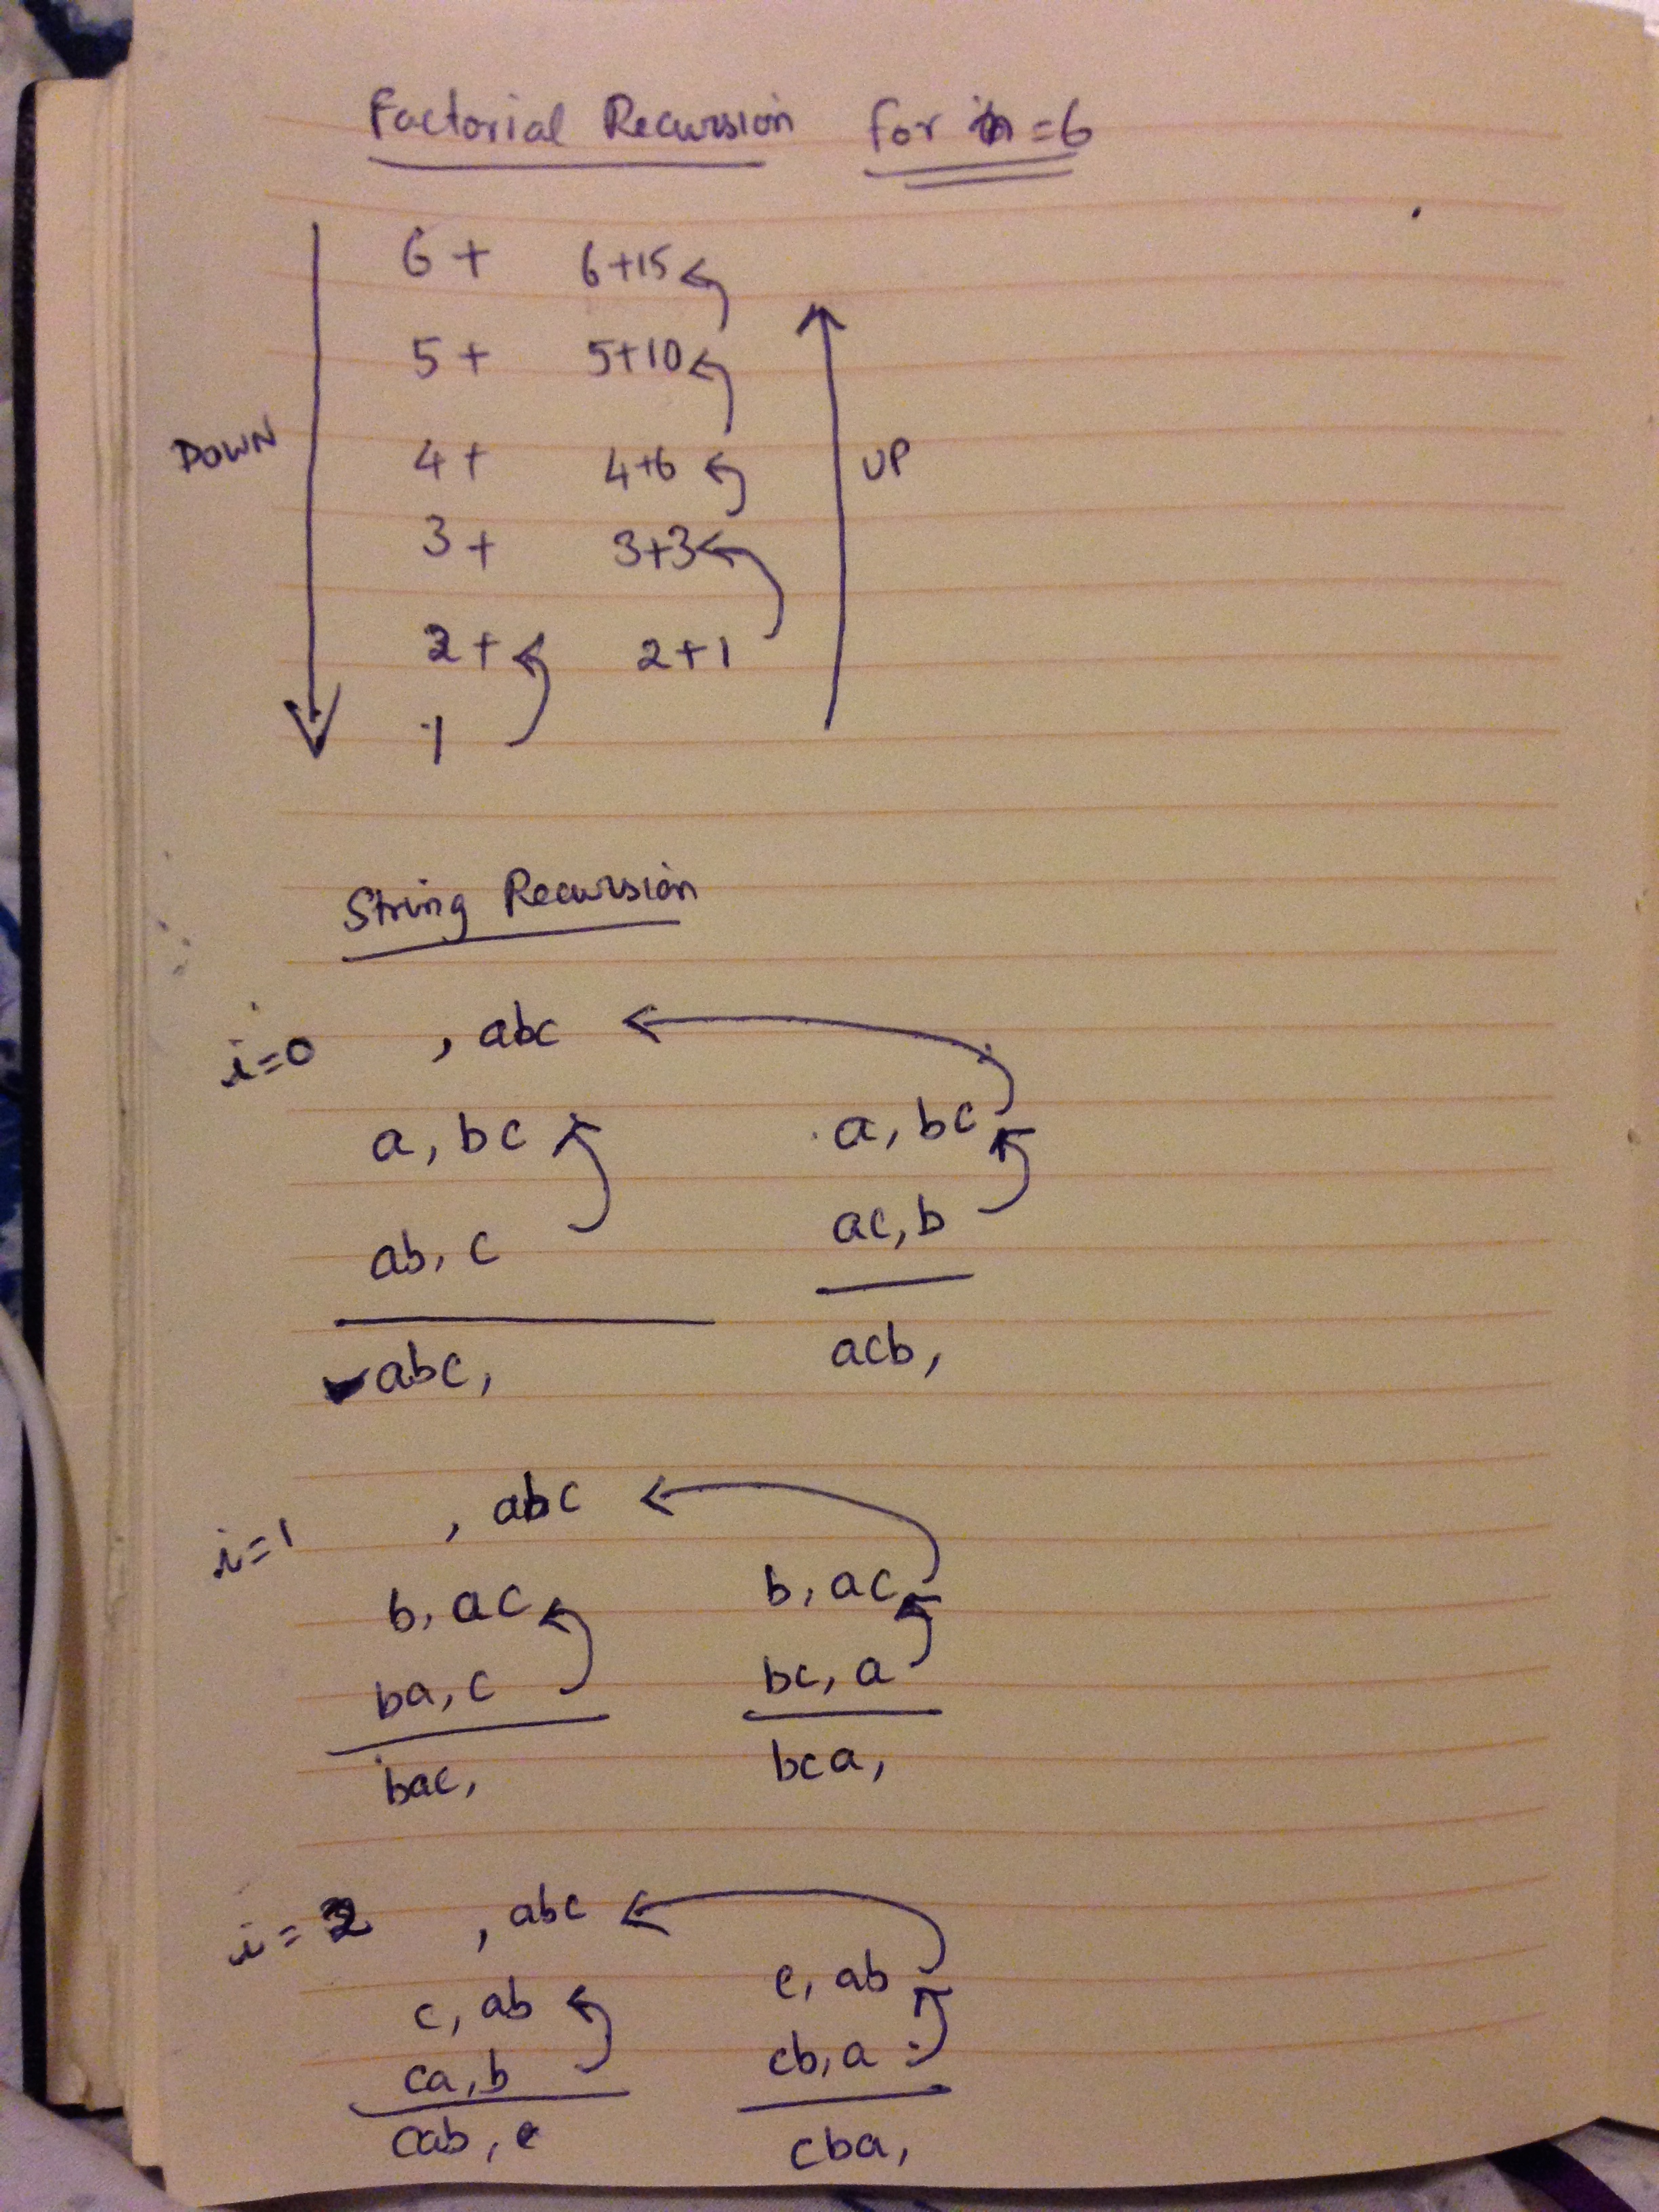 Factorial Recursion for n=6
6+ 6+15
5+ 5+10
DOWN 4+ 4+6 UP
3+ 3+3
2+ 2+1
1
String Recursion
i=0 , abc
a, bc a, bc
ab, c ac, b
abc, acb,
i=1 , abc
b, ac b, ac
ba, c bc, a
bac, bca,
i=2 , abc
c, ab c, ab
ca, b cb, a
cab, cba,